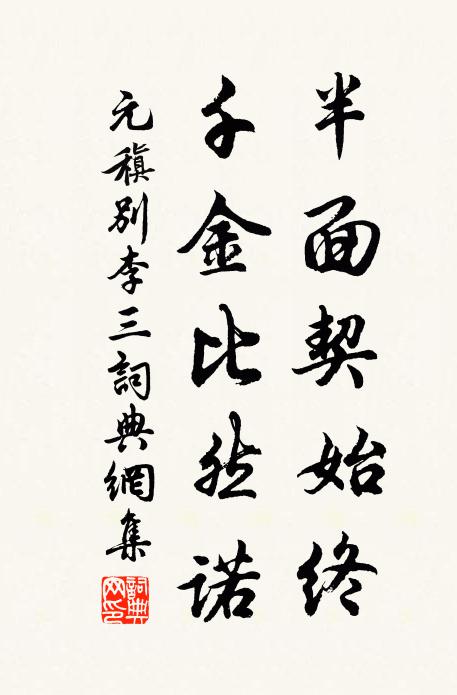 半面契始终
千金比然诺
元稹别李三詞典網集
詞典網印